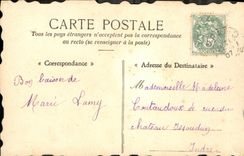 CARTE POSTALE
Tous les pays étrangers n'acceptent pas la correspondance
au recto (se renseigner à la poste)
« Correspondance »
« Adresse du Destinataire »
Bon baiser de
Marie Lamy
Mademoiselle Madeleine
rue du
chateau Issoudun
Indre
5